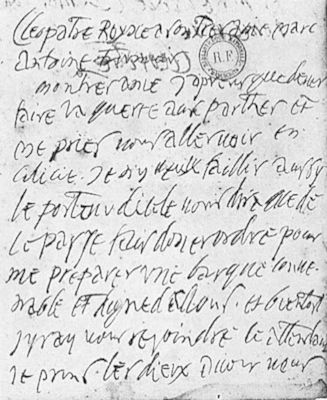 Cleopatre Royne a son tres amé marc
antoine
R.F.
mon tres amé j apren que devez
faire la guerre aux parthes et
me priés vous aller voir en
cilicie. Je n y veux faillir aussy
le porteur dicele vous dira que de
ce pas je fais doner ordre pour
me preparer une barque conve
nable et digne de vous. et bientost
j yray vous rejoindre ce attendant
je prins les dieux vous